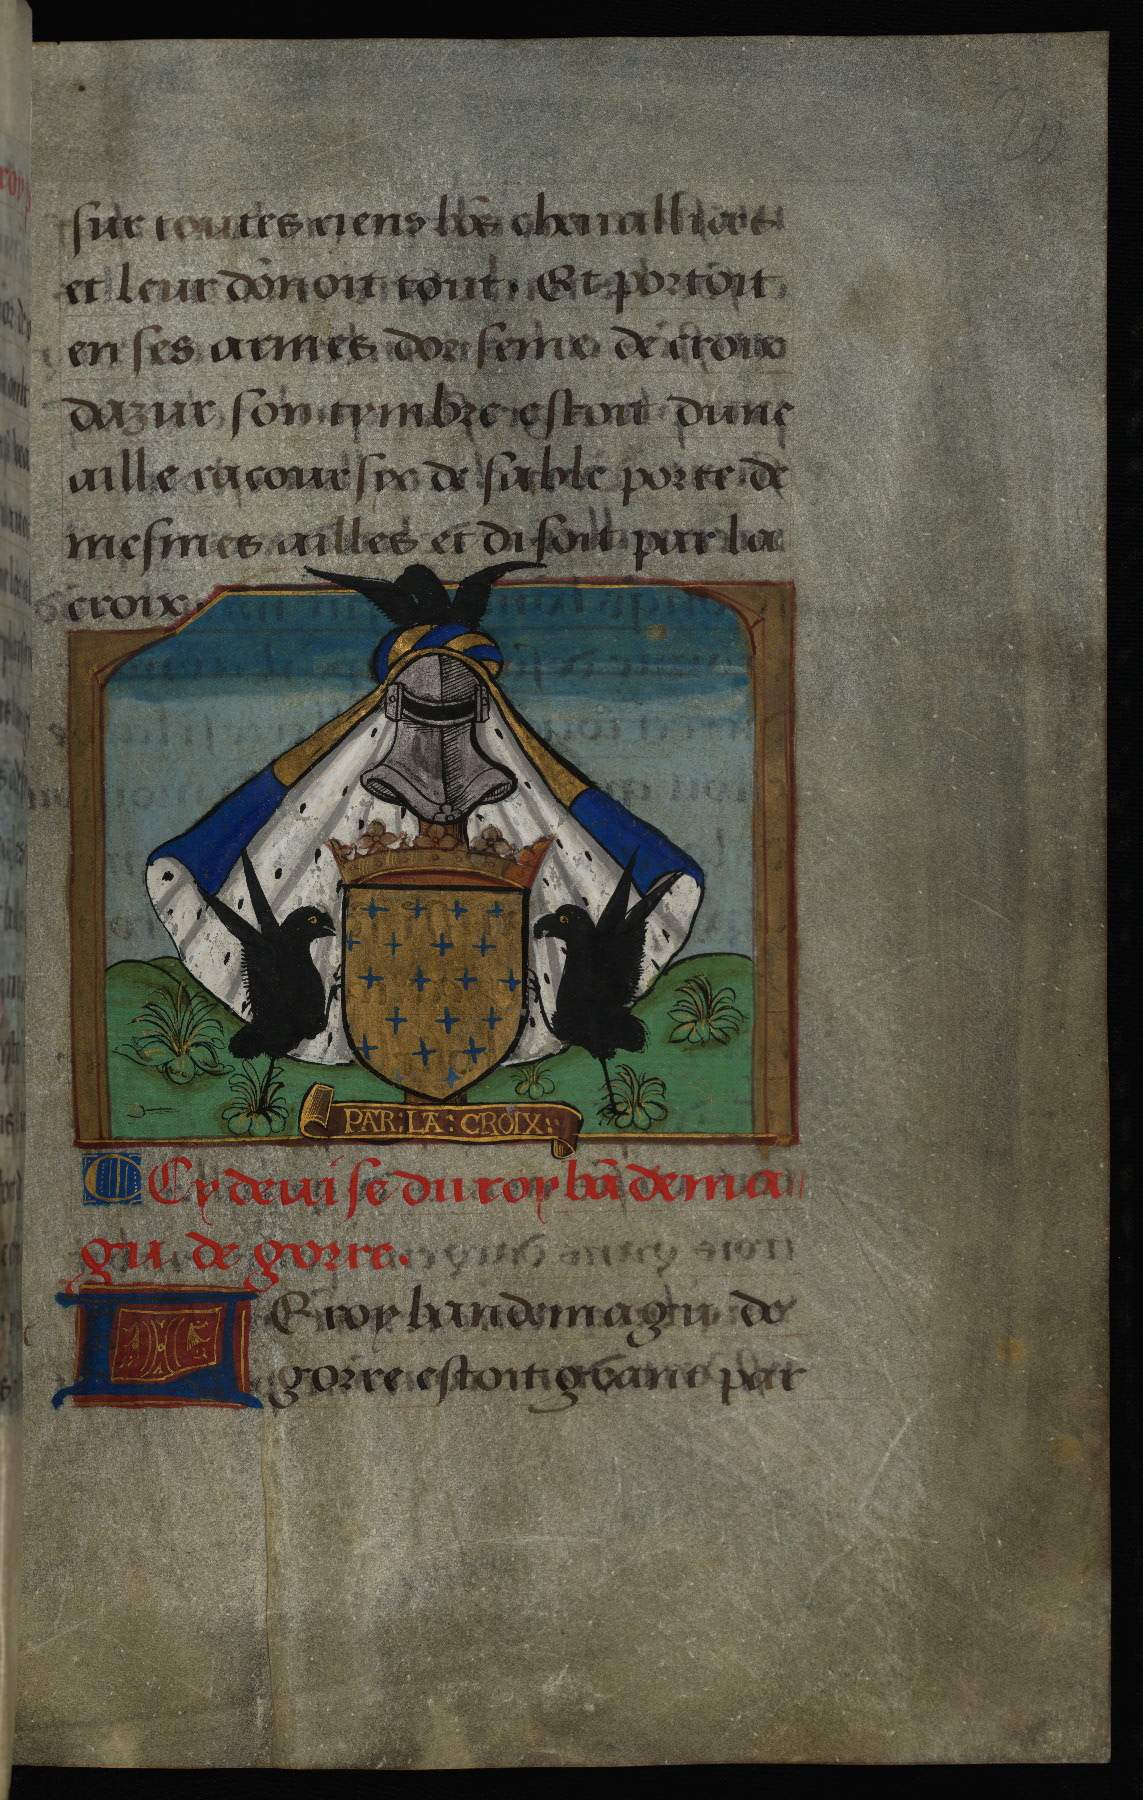 sur toutes riens bõs chevalliers
et leur dõnoit tout. Et portoit
en ses armes dor seme de croix
dazur son tymbre estoit dune
aille racoursye de sable porte de
mesmes ailles et disoit par la
croix.
PAR: LA: CROIX:
Cy devise du roy bãdema
gu de gorre.
LE roy bandemagu de
gorre estoit grant par